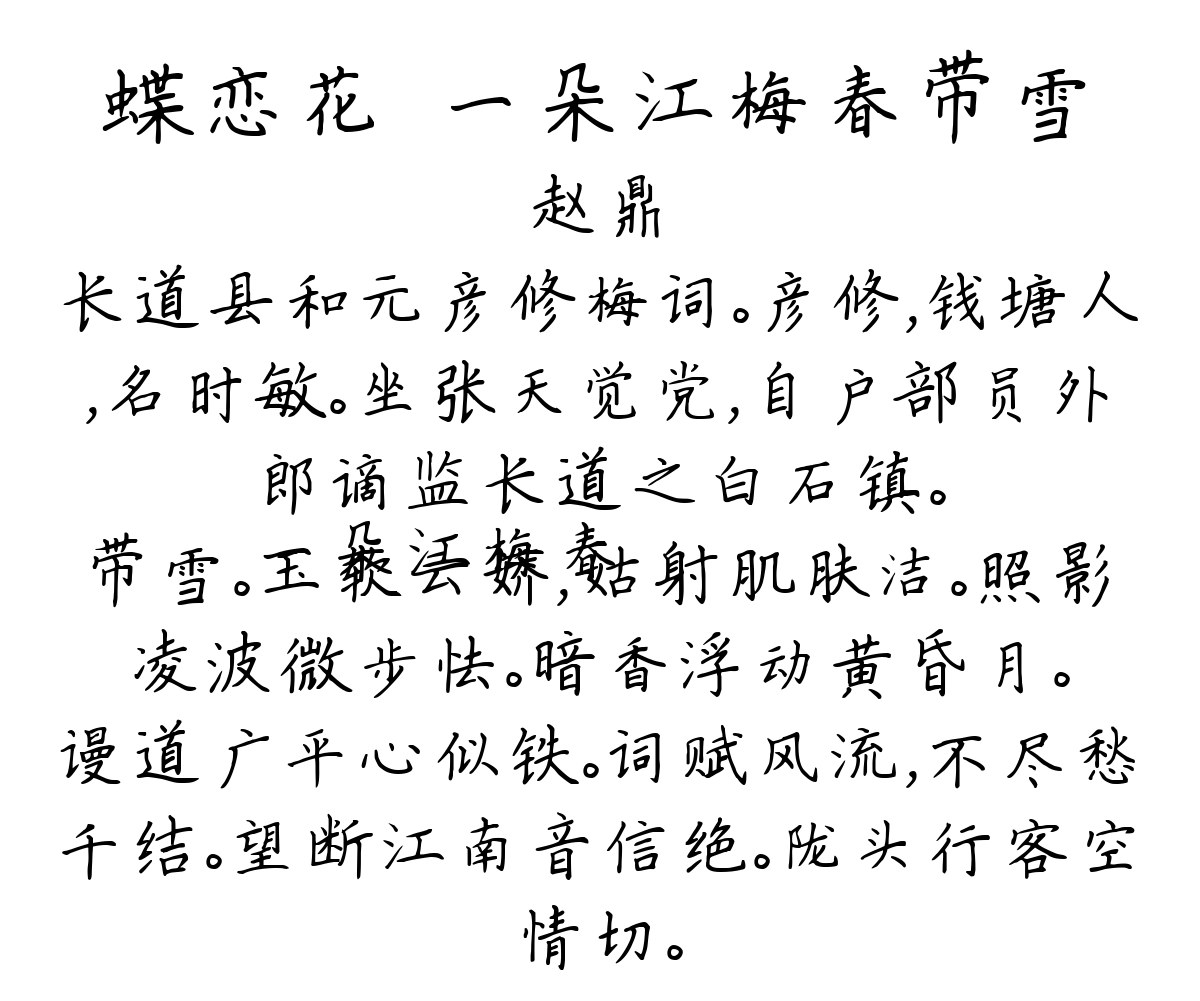 蝶恋花 一朵江梅春带雪
赵鼎
长道县和元彦修梅词。彦修,钱塘人
,名时敏。坐张天觉党,自户部员外
郎谪监长道之白石镇。
朵江梅春
带雪。玉软云娇,姑射肌肤洁。照影
凌波微步怯。暗香浮动黄昏月。
谩道广平心似铁。词赋风流,不尽愁
千结。望断江南音信绝。陇头行客空
情切。